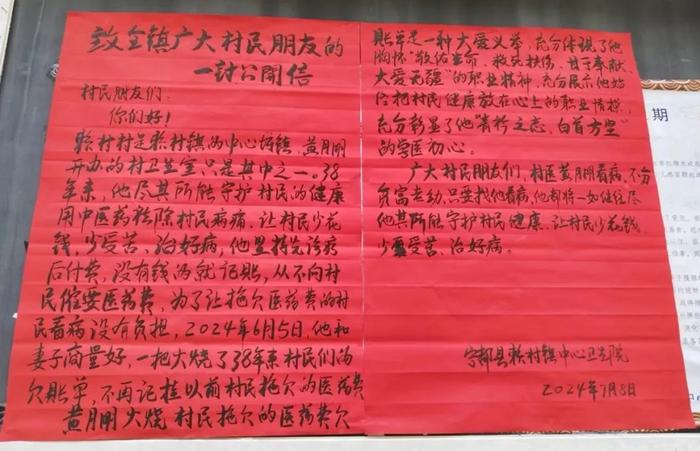 致全镇广大村民朋友的
一封公开信
村民朋友们:
你们好!
赖村村是赖村镇的中心圩镇,黄月朋
开办的村卫生室只是其中之一。38
年来,他尽其所能守护村民的健康
用中医药祛除村民病痛、让村民少花
钱,少受苦、治好病,他坚持先诊疗
后付费,没有钱的就记账,从不向村
民催要医药费,为了让拖欠医药费的村
民看病没有负担,2024年6月5日,他和
妻子商量好,一把火烧了38年来村民们的
欠账单,不再记挂以前村民拖欠的医药费
黄月朋火烧村民拖欠的医药费欠
账单是一种大爱义举,充分体现了他
胸怀"敬佑生命、救死扶伤、甘于奉献、
大爱无疆"的职业精神,充分展示他始
终把村民健康放在心上的职业情操,
充分彰显了他"青衿之志、白首方坚"
的学医初心。
广大村民朋友们,村医黄月朋看病,不分
贫富老幼,只要找他看病,他都将一如既往尽
他其所能守护村民健康、让村民少花钱、
少受苦、治好病。
宁都县赖村镇中心卫生院
2024年7月8日
期